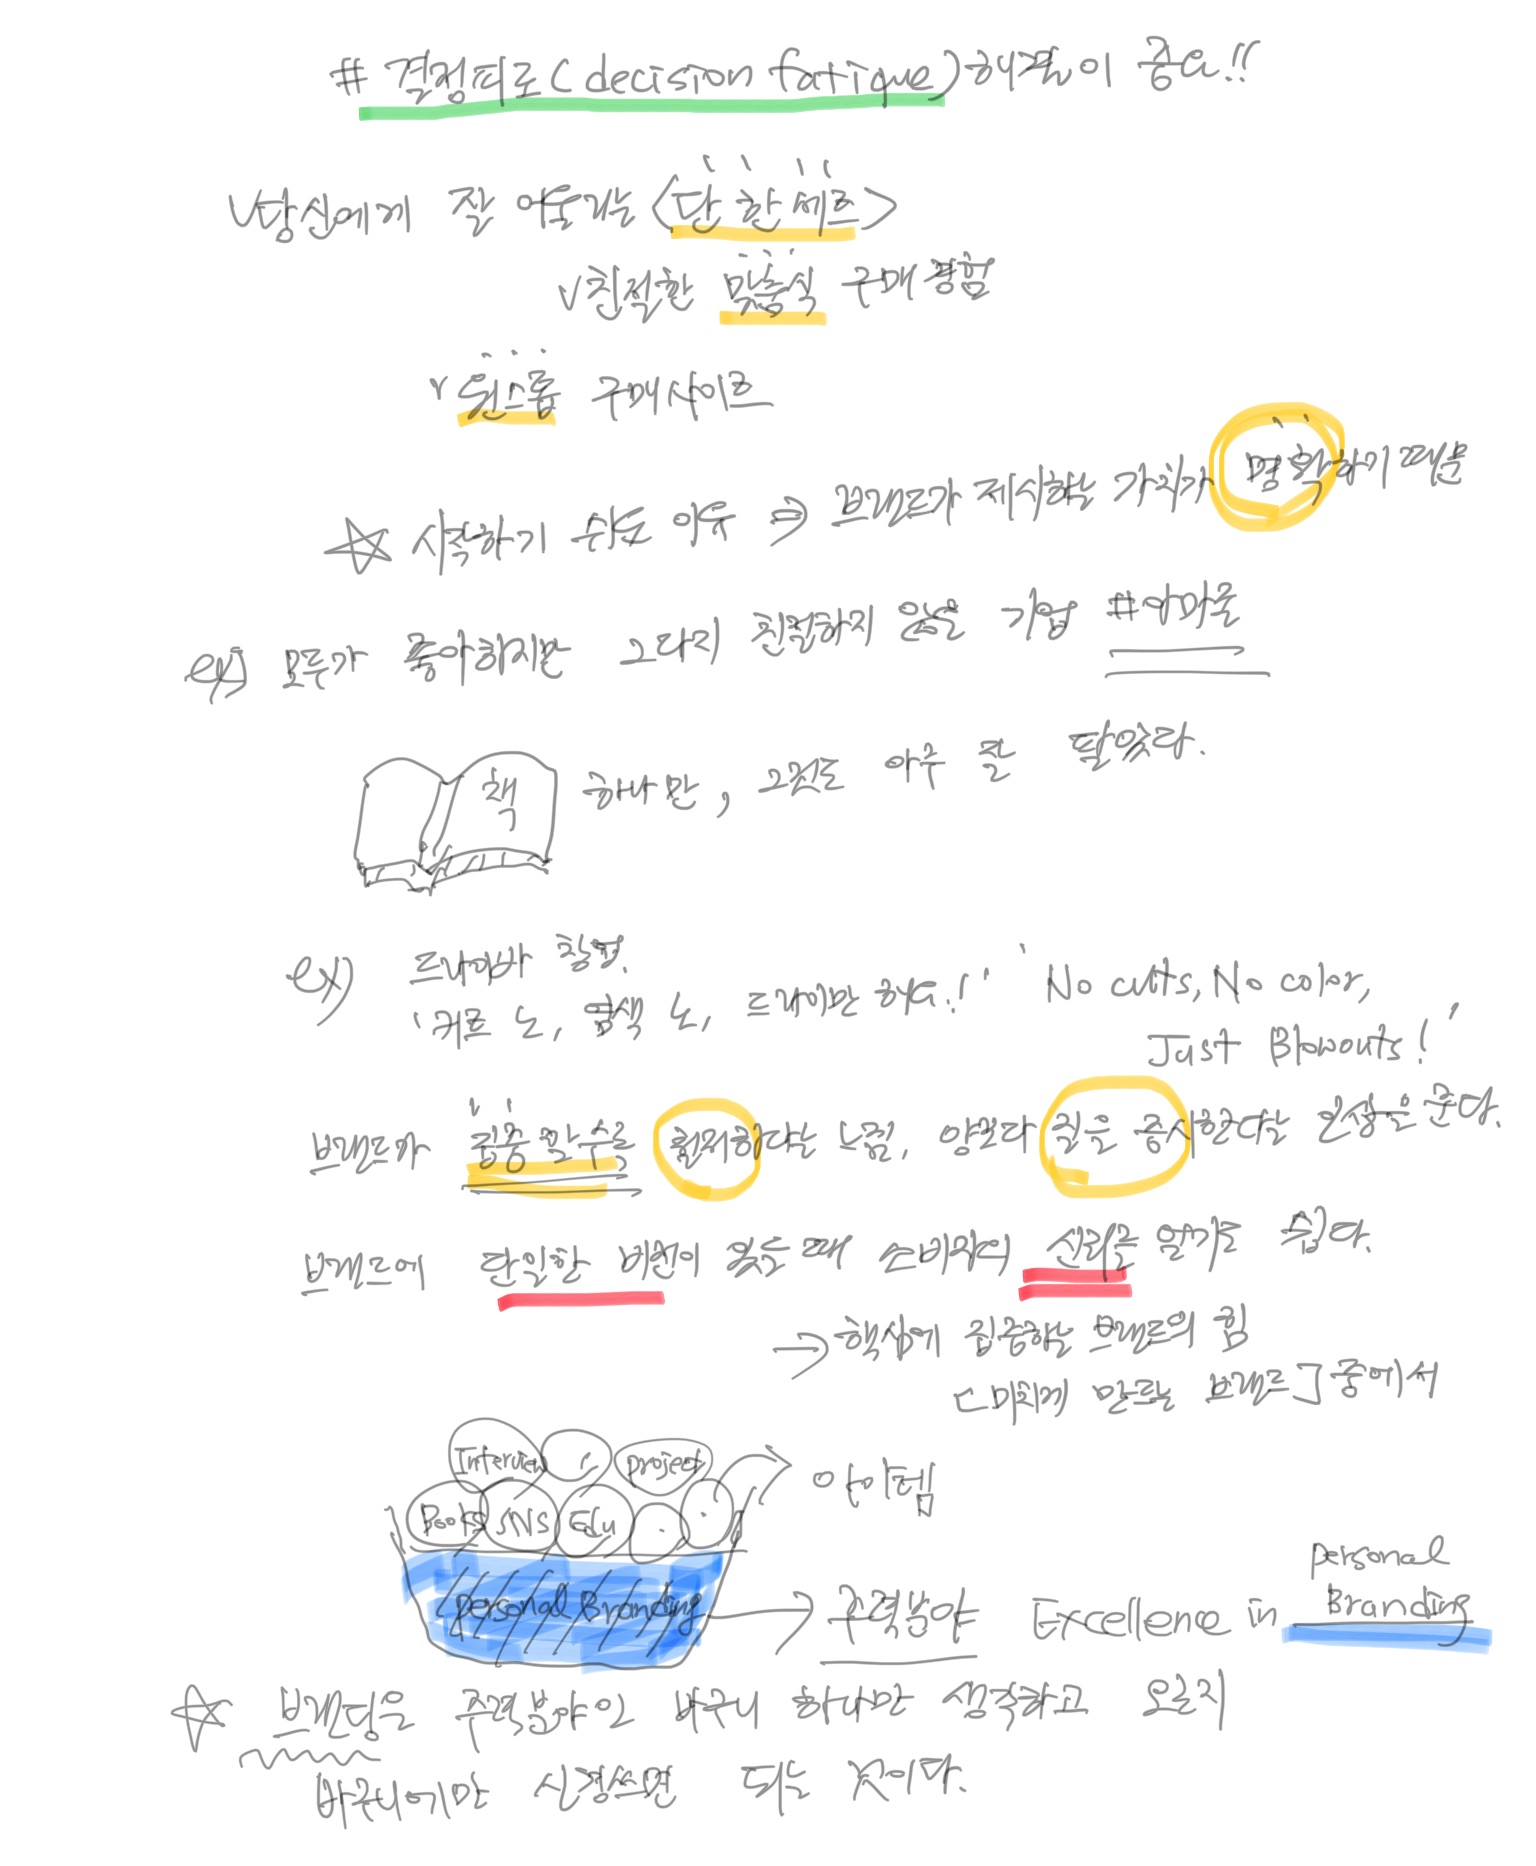 # 결정피로(decision fatique)해결이 중요!!
V당신에게 잘 어울리는 <단 한 세트>
V친절한 맞춤식 구매경험
V 원스톱 구매사이트
☆ 시작하기 쉬운 이유 ⇒ 브랜드가 제시하는 가치가 명확하기 때문
ex) 모두가 좋아하지만 그다지 친절하지 않은 기업 #아마존
책 하나만, 그것도 아주 잘 팔았다.
ex) 드라이바 창업.
'커트 노, 염색 노, 드라이만 해요!' 'No cuts, No color,
Just Blowouts!'
브랜드가 집중할수록 훤하다는 느낌, 양보다 질을 중시한다는 인상을 준다.
브랜드에 단일한 비전이 있을 때 소비자의 신뢰를 얻기도 쉽다.
→ 핵심에 집중하는 브랜드의 힘
[미치게 만드는 브랜드] 중에서
Interview project
Books SNS Edu
아이템
Personal Branding → 주력분야 Excellence in personal Branding
☆ 브랜딩은 주력분야인 바구니 하나만 생각하고 오로지
바구니에만 신경쓰면 되는 것이다.